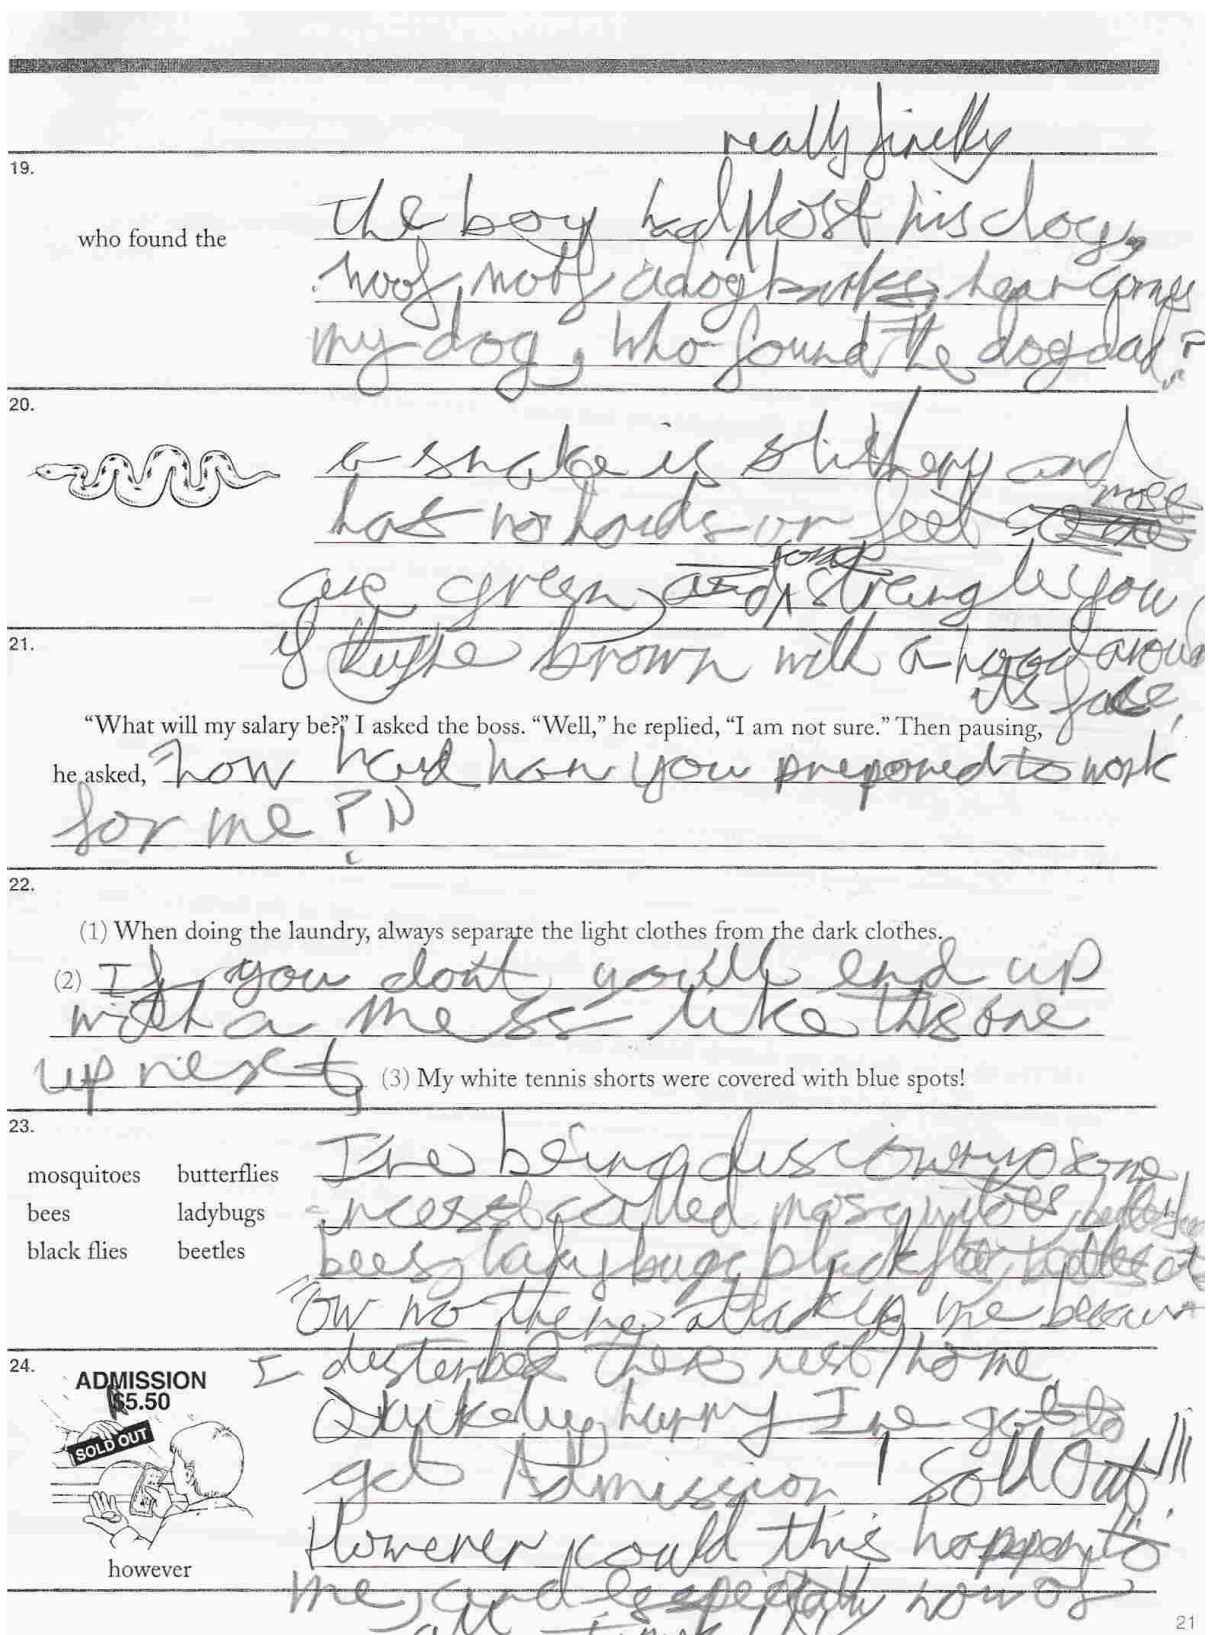 really
19.
who found the
the boy had lost his dog,
woof, woof, a dog barks, hear comes
my dog, who found the dog dad?
20.
a snake is slithery and
has no hands or feet most
are green, and some strangle you
21.
if brown with a hood around
its face
“What will my salary be?” I asked the boss. “Well,” he replied, “I am not sure.” Then pausing,
he asked, "how hard have you prepared to work
for me?"
22.
(1) When doing the laundry, always separate the light clothes from the dark clothes.
(2) If you dont you'll end up
with a mess like this one
up next, (3) My white tennis shorts were covered with blue spots!
23.
mosquitoes butterflies
bees ladybugs
black flies beetles
I've being some
called mosquitoes
bees, black
ow no attacking me
24.
I rest/home
ADMISSION
$5.50
SOLD OUT
however
hurry I've got to
get Admission! Sold Out!!!
However could this happen to
me, and especially now of
all
21